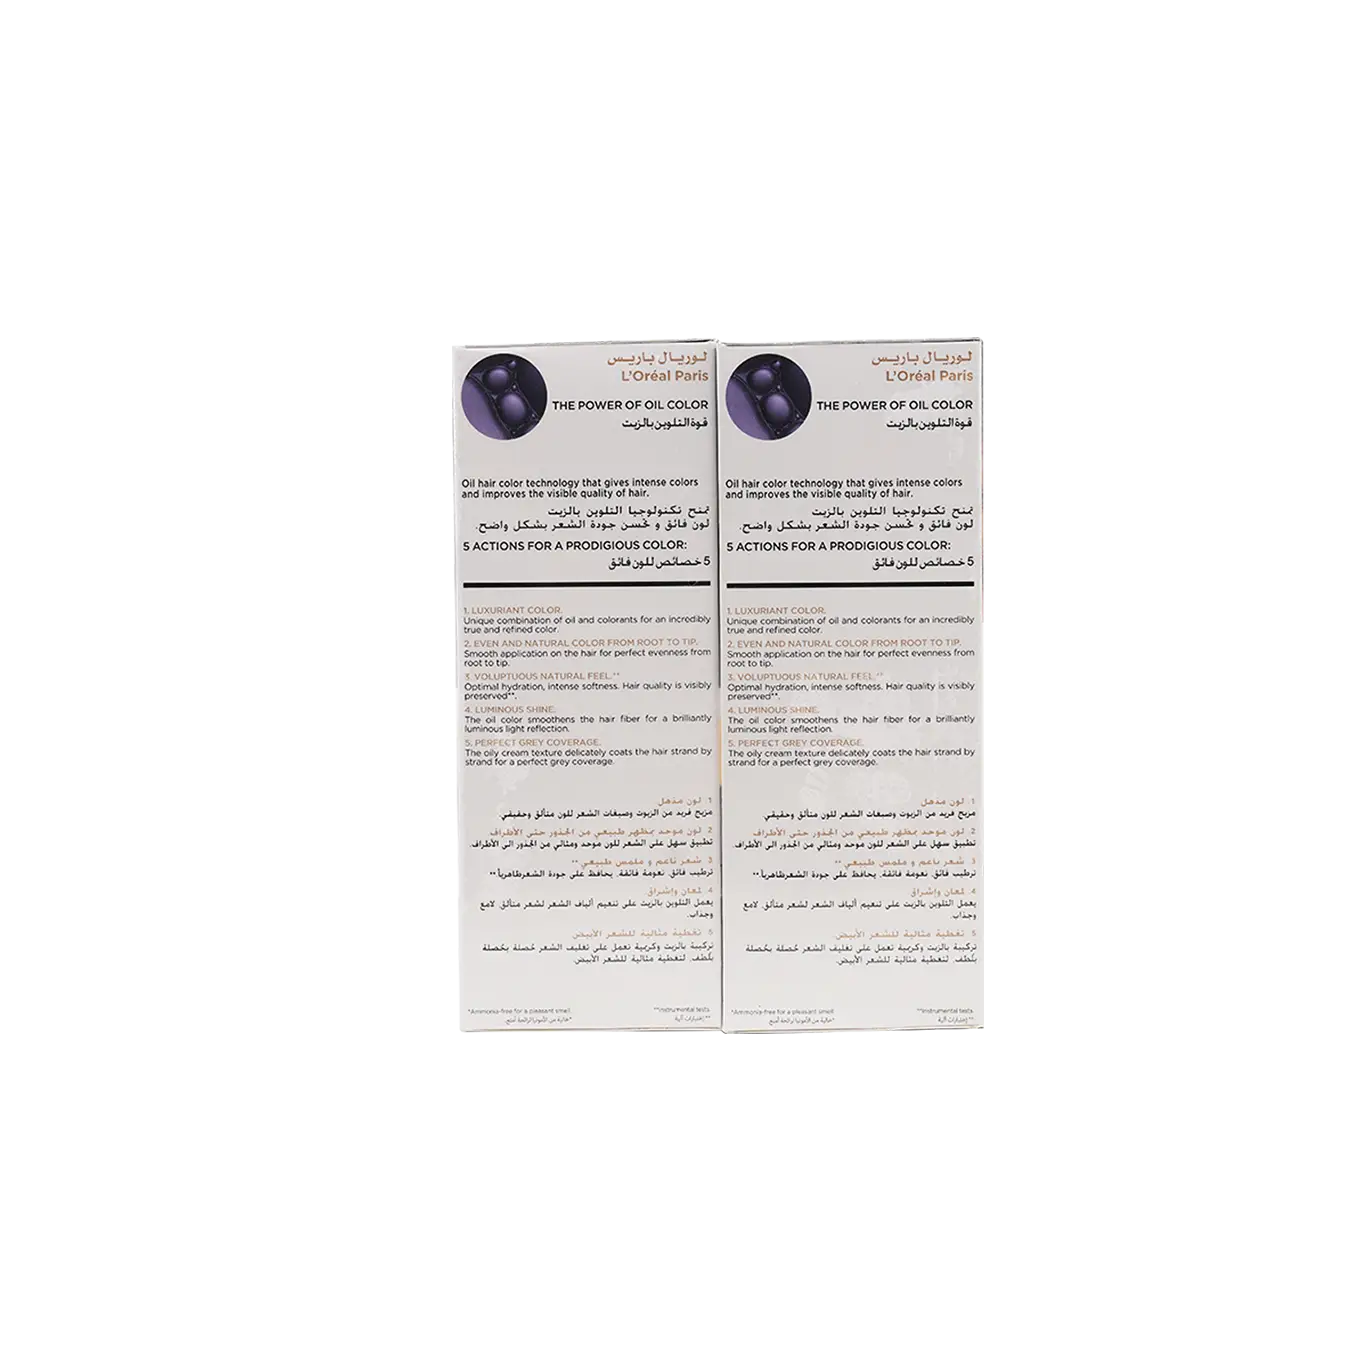 لوريال باريس
L'Oréal Paris
THE POWER OF OIL COLOR
قوة التلوين بالزيت
Oil hair color technology that gives intense colors
and improves the visible quality of hair.
تمنح تكنولوجيا التلوين بالزيت
لون فائق و تحسن جودة الشعر بشكل واضح.
5 ACTIONS FOR A PRODIGIOUS COLOR:
5 خصائص للون فائق
1. LUXURIANT COLOR.
Unique combination of oil and colorants for an incredibly
true and refined color.
2. EVEN AND NATURAL COLOR FROM ROOT TO TIP.
Smooth application on the hair for perfect evenness from
root to tip.
3. VOLUPTUOUS NATURAL FEEL.**
Optimal hydration, intense softness. Hair quality is visibly
preserved**.
4. LUMINOUS SHINE.
The oil color smoothens the hair fiber for a brilliantly
luminous light reflection.
5. PERFECT GREY COVERAGE.
The oily cream texture delicately coats the hair strand by
strand for a perfect grey coverage.
1. لون مذهل
مزيج فريد من الزيوت وصبغات الشعر للون متألق وحقيقي.
2. لون موحد بمظهر طبيعي من الجذور حتى الأطراف
تطبيق سهل على الشعر للون موحد ومثالي من الجذور الى الأطراف.
3. شعر ناعم و ملمس طبيعي**
ترطيب فائق، نعومة فائقة. يحافظ على جودة الشعر ظاهرياً**
4. لمعان وإشراق
يعمل التلوين بالزيت على تنعيم ألياف الشعر لشعر متألق، لامع
وجذاب.
5. تغطية مثالية للشعر الأبيض
تركيبة بالزيت وكريمية تعمل على تغليف الشعر خصلة بخصلة
بلطف، لتغطية مثالية للشعر الأبيض.
*Ammonia-free for a pleasant smell
**Instrumental tests.
*خالية من الأمونيا لرائحة أمتع.
**إختبارات آلية
لوريال باريس
L'Oréal Paris
THE POWER OF OIL COLOR
قوة التلوين بالزيت
Oil hair color technology that gives intense colors
and improves the visible quality of hair.
تمنح تكنولوجيا التلوين بالزيت
لون فائق و تحسن جودة الشعر بشكل واضح.
5 ACTIONS FOR A PRODIGIOUS COLOR:
5 خصائص للون فائق
1. LUXURIANT COLOR.
Unique combination of oil and colorants for an incredibly
true and refined color.
2. EVEN AND NATURAL COLOR FROM ROOT TO TIP.
Smooth application on the hair for perfect evenness from
root to tip.
3. VOLUPTUOUS NATURAL FEEL.**
Optimal hydration, intense softness. Hair quality is visibly
preserved**.
4. LUMINOUS SHINE.
The oil color smoothens the hair fiber for a brilliantly
luminous light reflection.
5. PERFECT GREY COVERAGE.
The oily cream texture delicately coats the hair strand by
strand for a perfect grey coverage.
1. لون مذهل
مزيج فريد من الزيوت وصبغات الشعر للون متألق وحقيقي.
2. لون موحد بمظهر طبيعي من الجذور حتى الأطراف
تطبيق سهل على الشعر للون موحد ومثالي من الجذور الى الأطراف.
3. شعر ناعم و ملمس طبيعي**
ترطيب فائق، نعومة فائقة. يحافظ على جودة الشعر ظاهرياً**
4. لمعان وإشراق
يعمل التلوين بالزيت على تنعيم ألياف الشعر لشعر متألق، لامع
وجذاب.
5. تغطية مثالية للشعر الأبيض
تركيبة بالزيت وكريمية تعمل على تغليف الشعر خصلة بخصلة
بلطف، لتغطية مثالية للشعر الأبيض.
*Ammonia-free for a pleasant smell
**Instrumental tests.
*خالية من الأمونيا لرائحة أمتع.
**إختبارات آلية